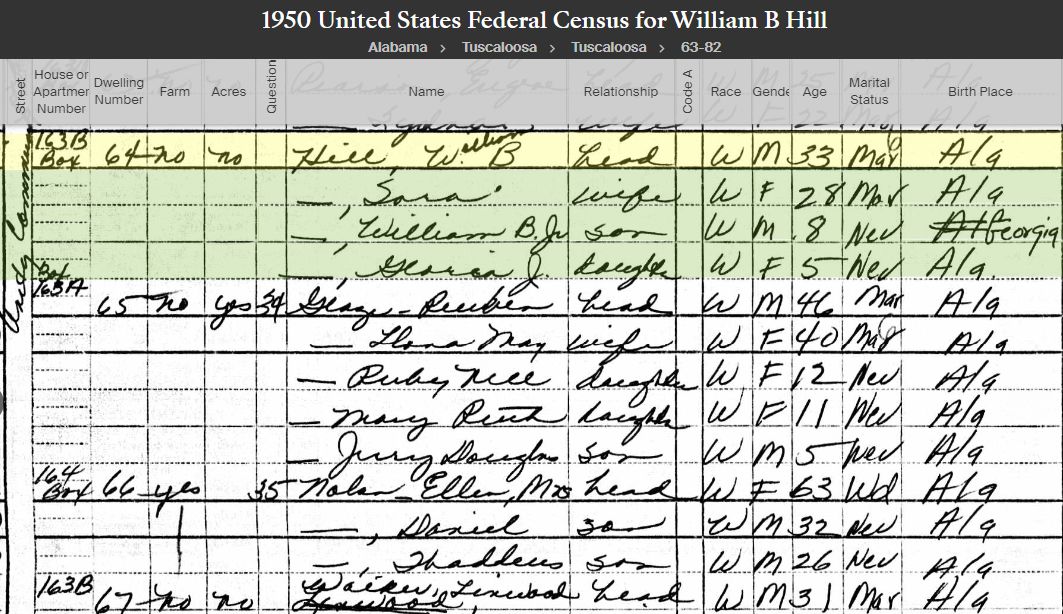 1950 United States Federal Census for William B Hill
Alabama > Tuscaloosa > Tuscaloosa > 63-82
Street House or Apartmer Number Dwelling Number Farm Acres Question Name Relationship Code A Race Gende Age Marital Status Birth Place
163B Box 64 no no Hill, William B head W M 33 Mar Ala
—, Sara wife W F 28 Mar Ala
—, William B. Jr son W M 8 Nev Georgia
—, Gloria J. daughter W F 5 Nev Ala.
Box 163A 65 no yes 34 Reuben head W M 46 Mar Ala
— May wife W F 40 Mar Ala
— Ruby Nell daughter W F 12 Nev Ala
— Mary Ruth daughter W F 11 Nev Ala
— Jerry Douglas son W M 5 Nev Ala
164 Box 66 yes 35 Nolan Ellen, Mrs head W F 63 Wd Ala
—, Daniel son W M 32 Nev Ala
—, Thaddeus son W M 26 Nev Ala
163B 67 no no Linwood head W M 31 Mar Ala